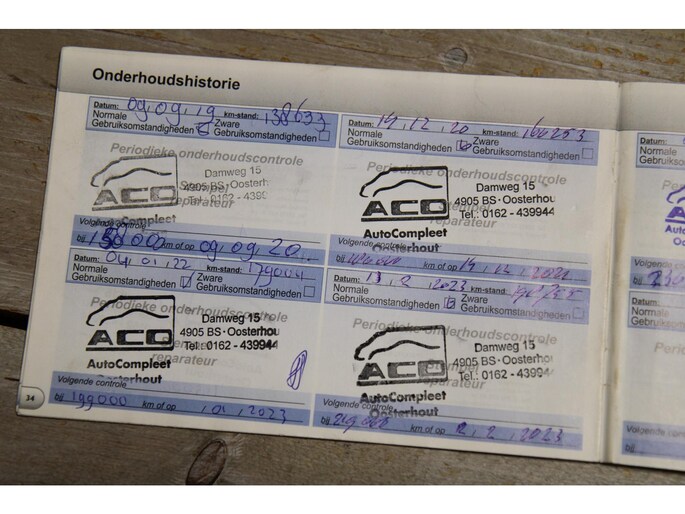 Onderhoudshistorie
Datum: 09.09.19 km-stand: 138633
Normale Gebruiksomstandigheden Zware Gebruiksomstandigheden
Periodieke onderhoudscontrole
Stempel reparateur
ACO
AutoCompleet
Damweg 15
4905 BS - Oosterhout
Tel.: 0162 - 439944
Volgende controle
bij km of op 09.09.20
Datum: 14.12.20 km-stand: 164253
Normale Gebruiksomstandigheden Zware Gebruiksomstandigheden
Periodieke onderhoudscontrole
Stempel reparateur
ACO
AutoCompleet
Oosterhout
Damweg 15
4905 BS - Oosterhout
Tel.: 0162 - 439944
Volgende controle
bij km of op 14.12.2021
Datum: 04.01.22 km-stand: 179004
Normale Gebruiksomstandigheden Zware Gebruiksomstandigheden
Periodieke onderhoudscontrole
ACO
AutoCompleet
Oosterhout
Damweg 15
4905 BS - Oosterhou
Tel.: 0162 - 439944
Volgende controle
bij 199000 km of op .01.2023
Datum: 2.2023 km-stand:
Normale Gebruiksomstandigheden Zware Gebruiksomstandigheden
Periodieke onderhoudscontrole
ACO
AutoCompleet
Oosterhout
Damweg 15
4905 BS - Oosterhou
Tel.: 0162 - 43994
Volgende controle
bij km of op 2.2.2023
34